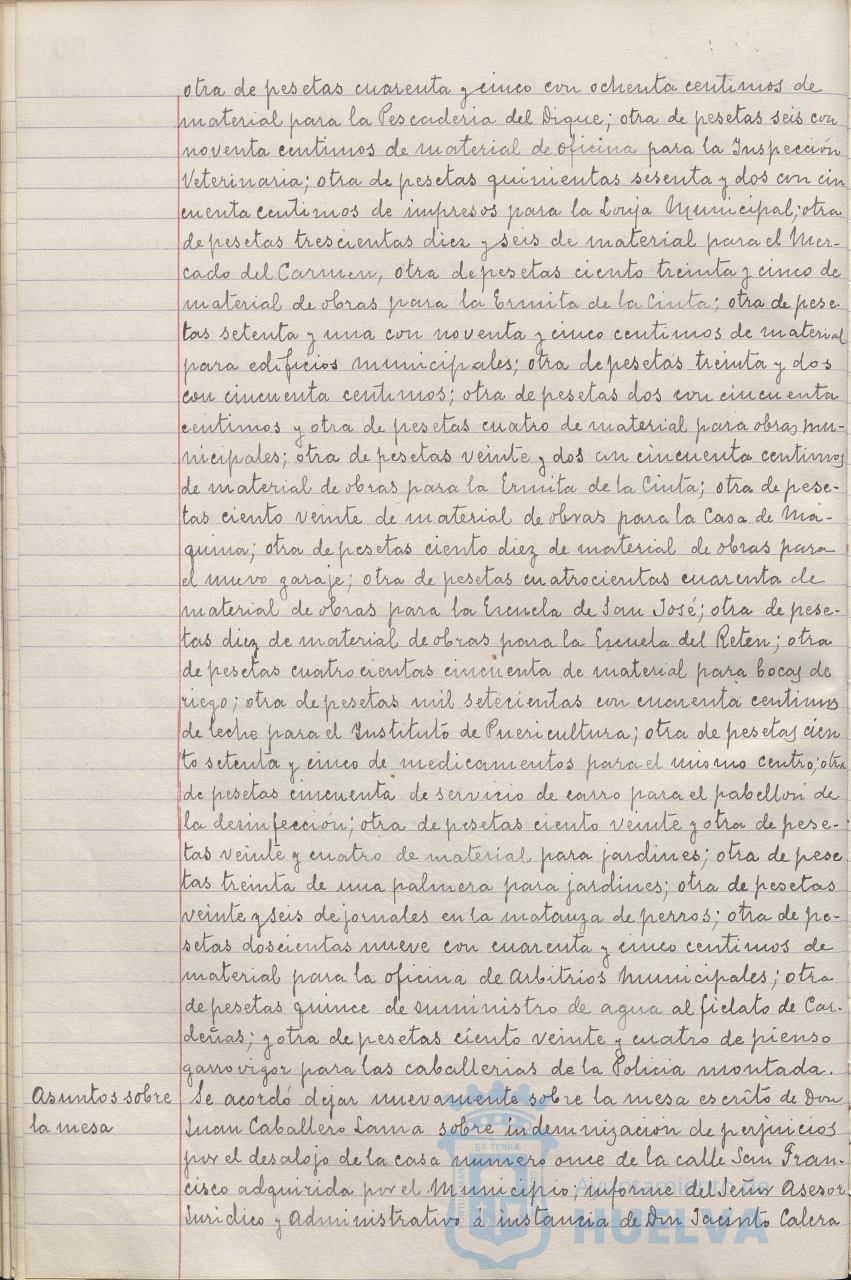 otra de pesetas cuarenta y cinco con ochenta centimos de
material para la Pescaderia del Dique; otra de pesetas seis con
noventa centimos de material de oficina para la Inspección
Veterinaria; otra de pesetas quinientas sesenta y dos con cin
cuenta centimos de impresos para la Lonja Municipal; otra
de pesetas trescientas diez y seis de material para el Mer-
cado del Carmen, otra de pesetas ciento treinta y cinco de
material de obras para la Ermita de la Cinta; otra de pese-
tas setenta y una con noventa y cinco centimos de material
para edificios municipales; otra de pesetas treinta y dos
con cincuenta centimos; otra de pesetas dos con cincuenta
centimos y otra de pesetas cuatro de material para obras mu-
nicipales; otra de pesetas veinte y dos con cincuenta centimos
de material de obras para la Ermita de la Cinta; otra de pese-
tas ciento veinte de material de obras para la Casa de Má-
quina; otra de pesetas ciento diez de material de obras para
el nuevo garaje; otra de pesetas cuatrocientas cuarenta de
material de obras para la Escuela de San José; otra de pese-
tas diez de material de obras para la Escuela del Reten; otra
de pesetas cuatrocientas cincuenta de material para bocas de
riego; otra de pesetas mil setecientas con cuarenta centimos
de leche para el Instituto de Puericultura; otra de pesetas cien
to setenta y cinco de medicamentos para el mismo centro; otra
de pesetas cincuenta de servicio de carro para el pabellon de
la desinfección; otra de pesetas ciento veinte y otra de pese-
tas veinte y cuatro de material para jardines; otra de pese
tas treinta de una palmera para jardines; otra de pesetas
veinte y seis de jornales en la matanza de perros; otra de pe-
setas doscientas nueve con cuarenta y cinco centimos de
material para la oficina de Arbitrios Municipales; otra
de pesetas quince de suministro de agua al fielato de Car-
deñas; y otra de pesetas ciento veinte y cuatro de pienso
garrovigor para las caballerias de la Policia montada.
Asuntos sobre
la mesa
Se acordó dejar nuevamente sobre la mesa escrito de Don
Juan Caballero Lama sobre indemnización de perjuicios
por el desalojo de la casa numero once de la calle San Fran-
cisco adquirida por el Municipio; informe del Señor Asesor
Juridico y Administrativo á instancia de Don Jacinto Calera
Ayuntamiento de
HUELVA